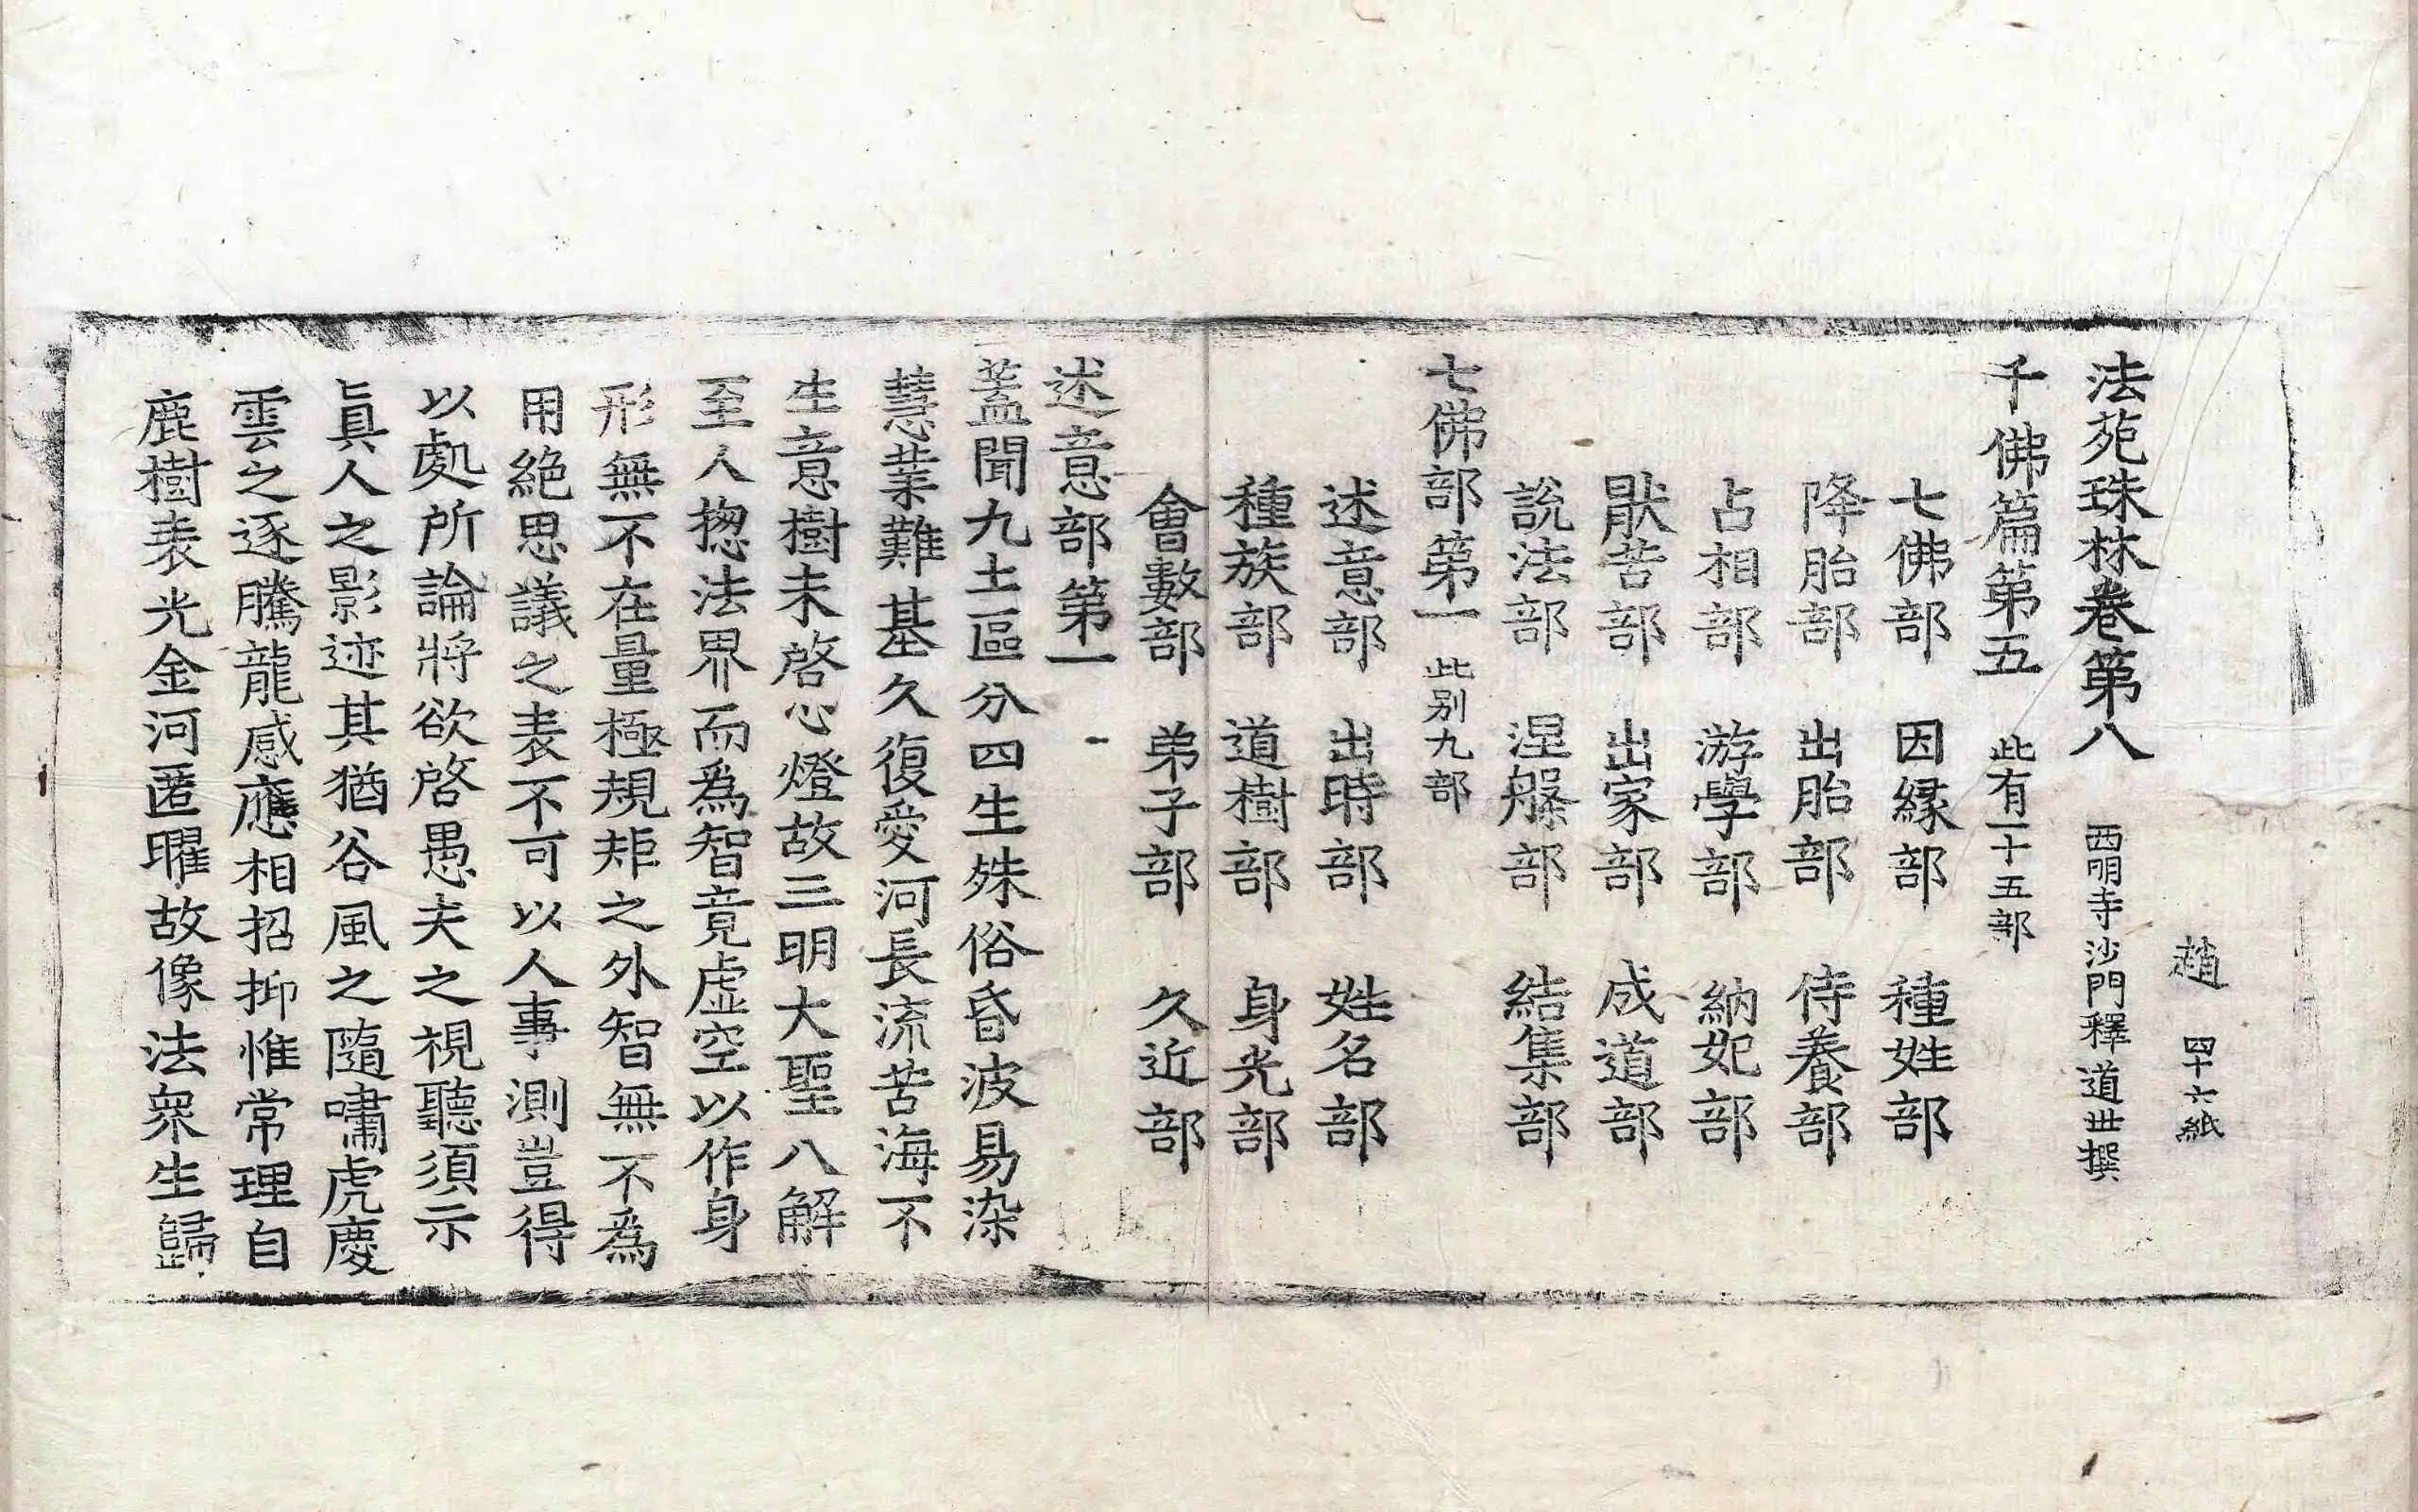 趙　四十六紙
法苑珠林卷第八　西明寺沙門釋道世撰
千佛篇第五　此有一十五部
七佛部　因縁部　種姓部
降胎部　出胎部　侍養部
占相部　游學部　納妃部
猒苦部　出家部　成道部
說法部　涅槃部　結集部
七佛部第一　此别九部
述意部　出時部　姓名部
種族部　道樹部　身光部
會數部　弟子部　久近部
述意部第一
蓋聞九土區分四生殊俗昏波易染
慧業難基久復愛河長流苦海不
生意樹未啓心燈故三明大聖八解
至人揔法界而爲智竟虛空以作身
形無不在量極規矩之外智無不爲
用絶思議之表不可以人事測豈得
以處所論將欲啓愚夫之視聽須示
眞人之影迹其猶谷風之隨嘯虎慶
雲之逐騰龍感應相招抑惟常理自
鹿樹表光金河匿曜故像法衆生歸